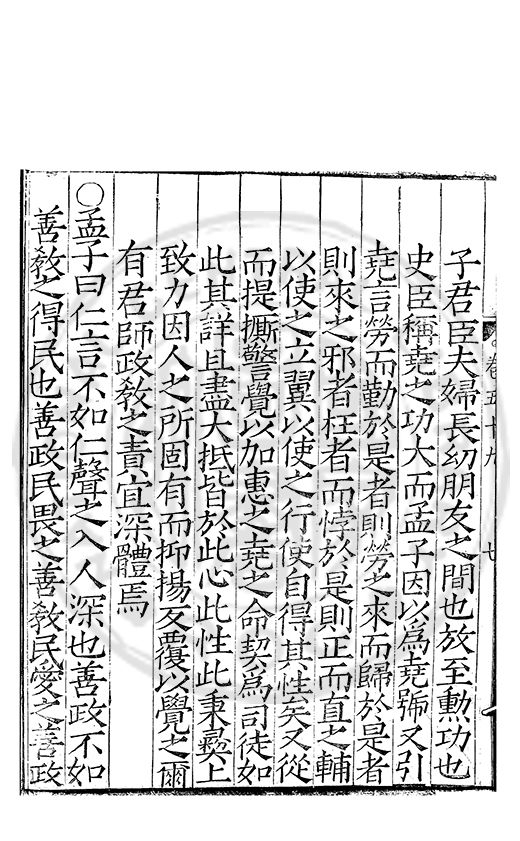 卷五十九
七
子君臣夫婦長幼朋友之間也放至勲功也
史臣稱堯之功大而孟子因以爲堯號又引
堯言勞而勤於是者則勞之來而歸於是者
則來之邪者枉者而悖於是則正而直之輔
以使之立翼以使之行使自得其性矣又從
而提撕警覺以加惠之堯之命契爲司徒如
此其詳且盡大抵皆於此心此性此秉彞上
致力因人之所固有而抑揚反覆以覺之爾
有君師政敎之責宜深體焉
○孟子曰仁言不如仁聲之入人深也善政不如
善敎之得民也善政民畏之善敎民愛之善政